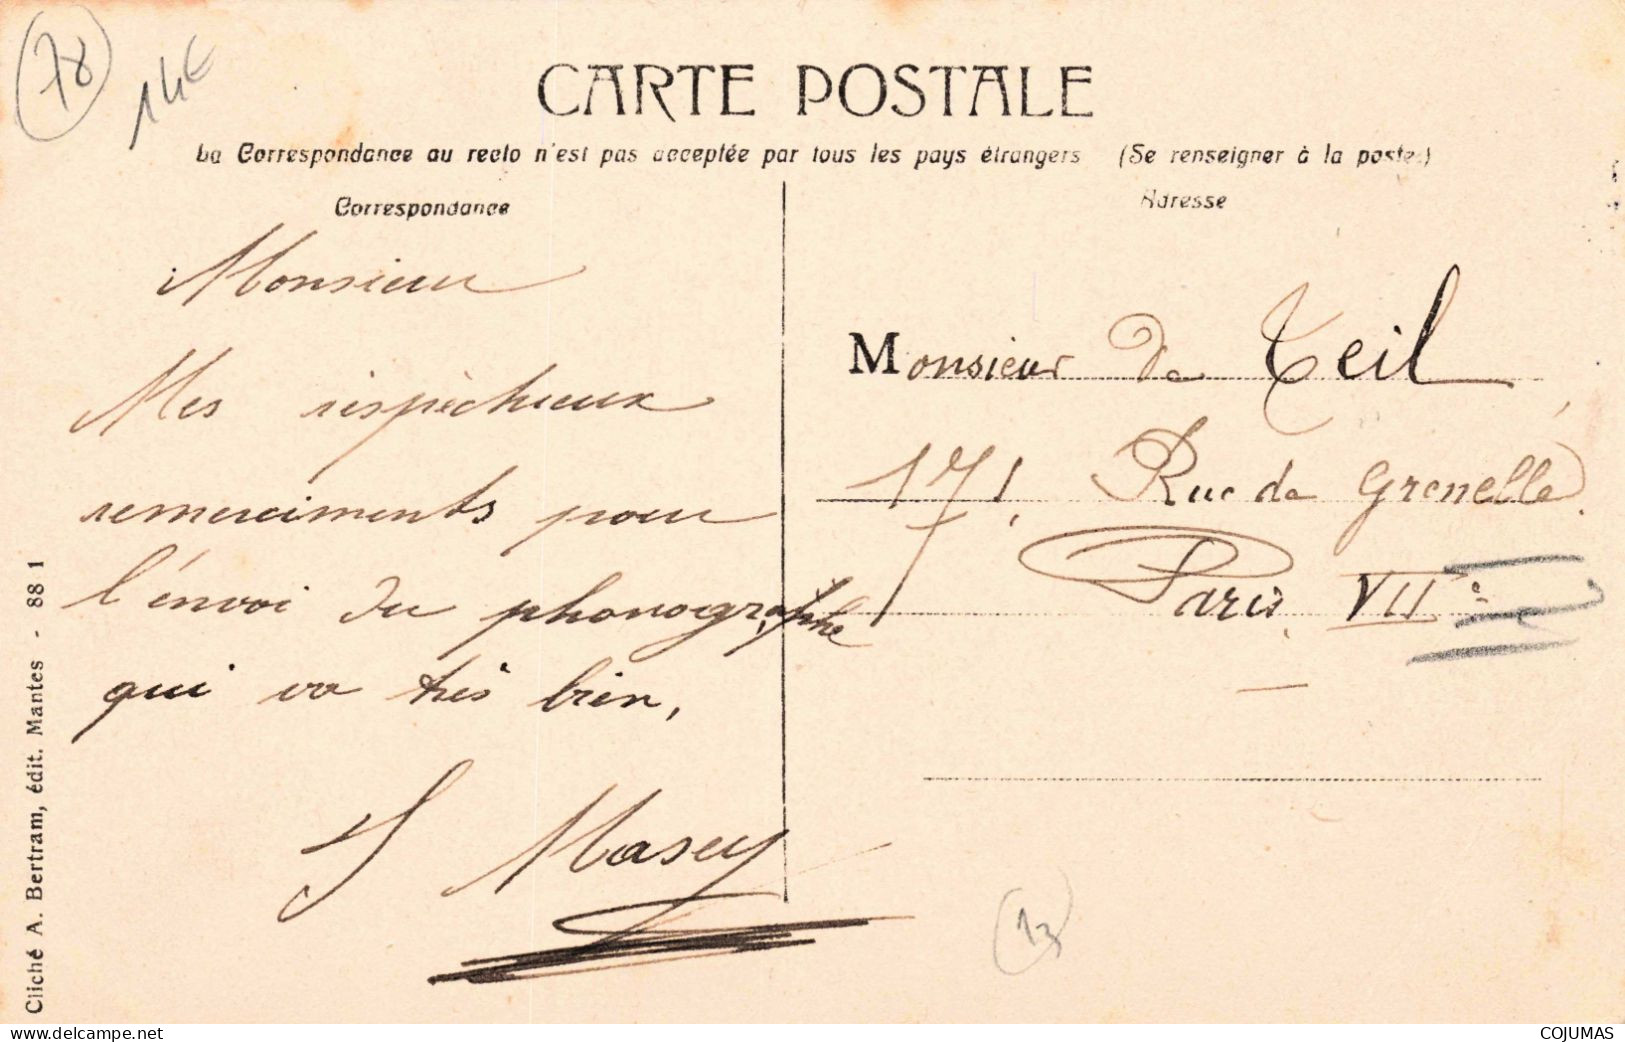 78
14€
CARTE POSTALE
La Correspondance au recto n'est pas acceptée par tous les pays étrangers (Se renseigner à la poste)
Correspondance
Adresse
Monsieur
Mes respèctueux
remerciments pour
l'envoi du phonographe
qui va très bien,
J Masey
Monsieur de Teil
171, Rue de Grenelle.
Paris VIIe
13
Cliché A. Bertram, édit. Mantes - 88 1
https://www.delcampe.net
COJUMAS